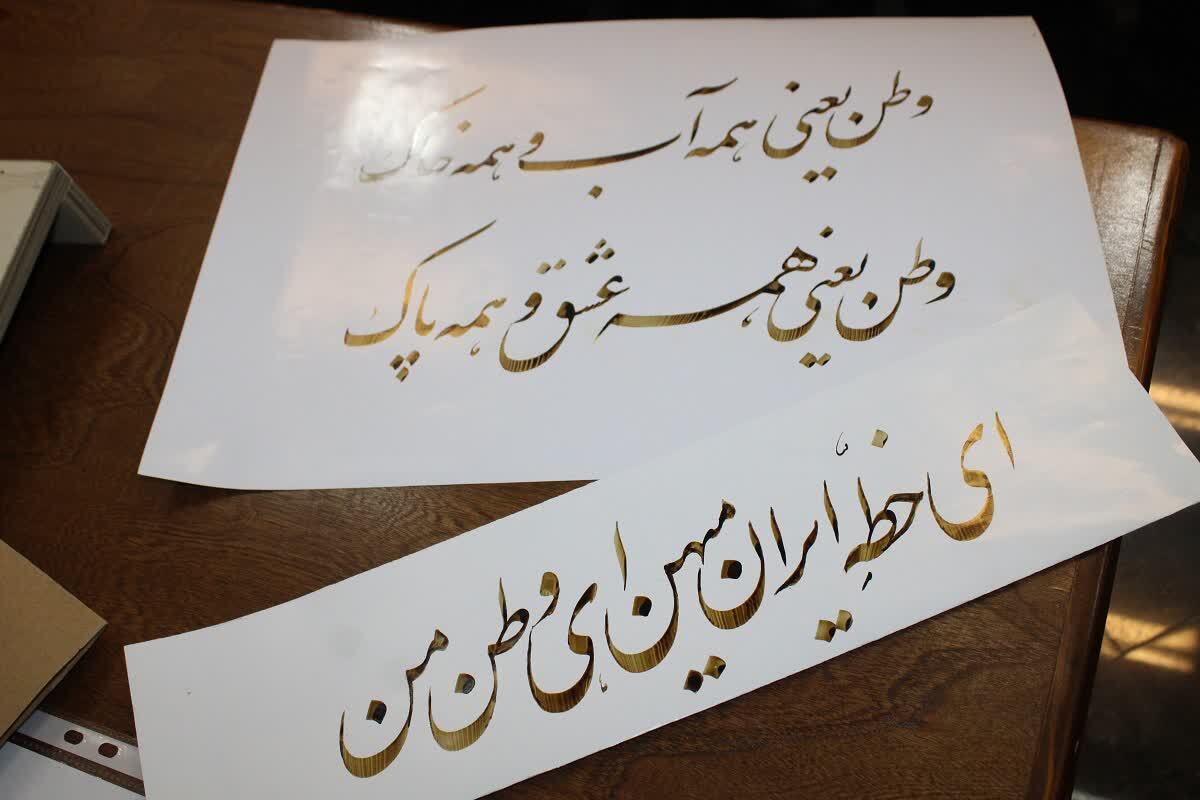 وطن یعنی همه آب و همه خاک
وطن یعنی همه عشق و همه پاک
ای خطّهٔ ایران میهن ای وطن من